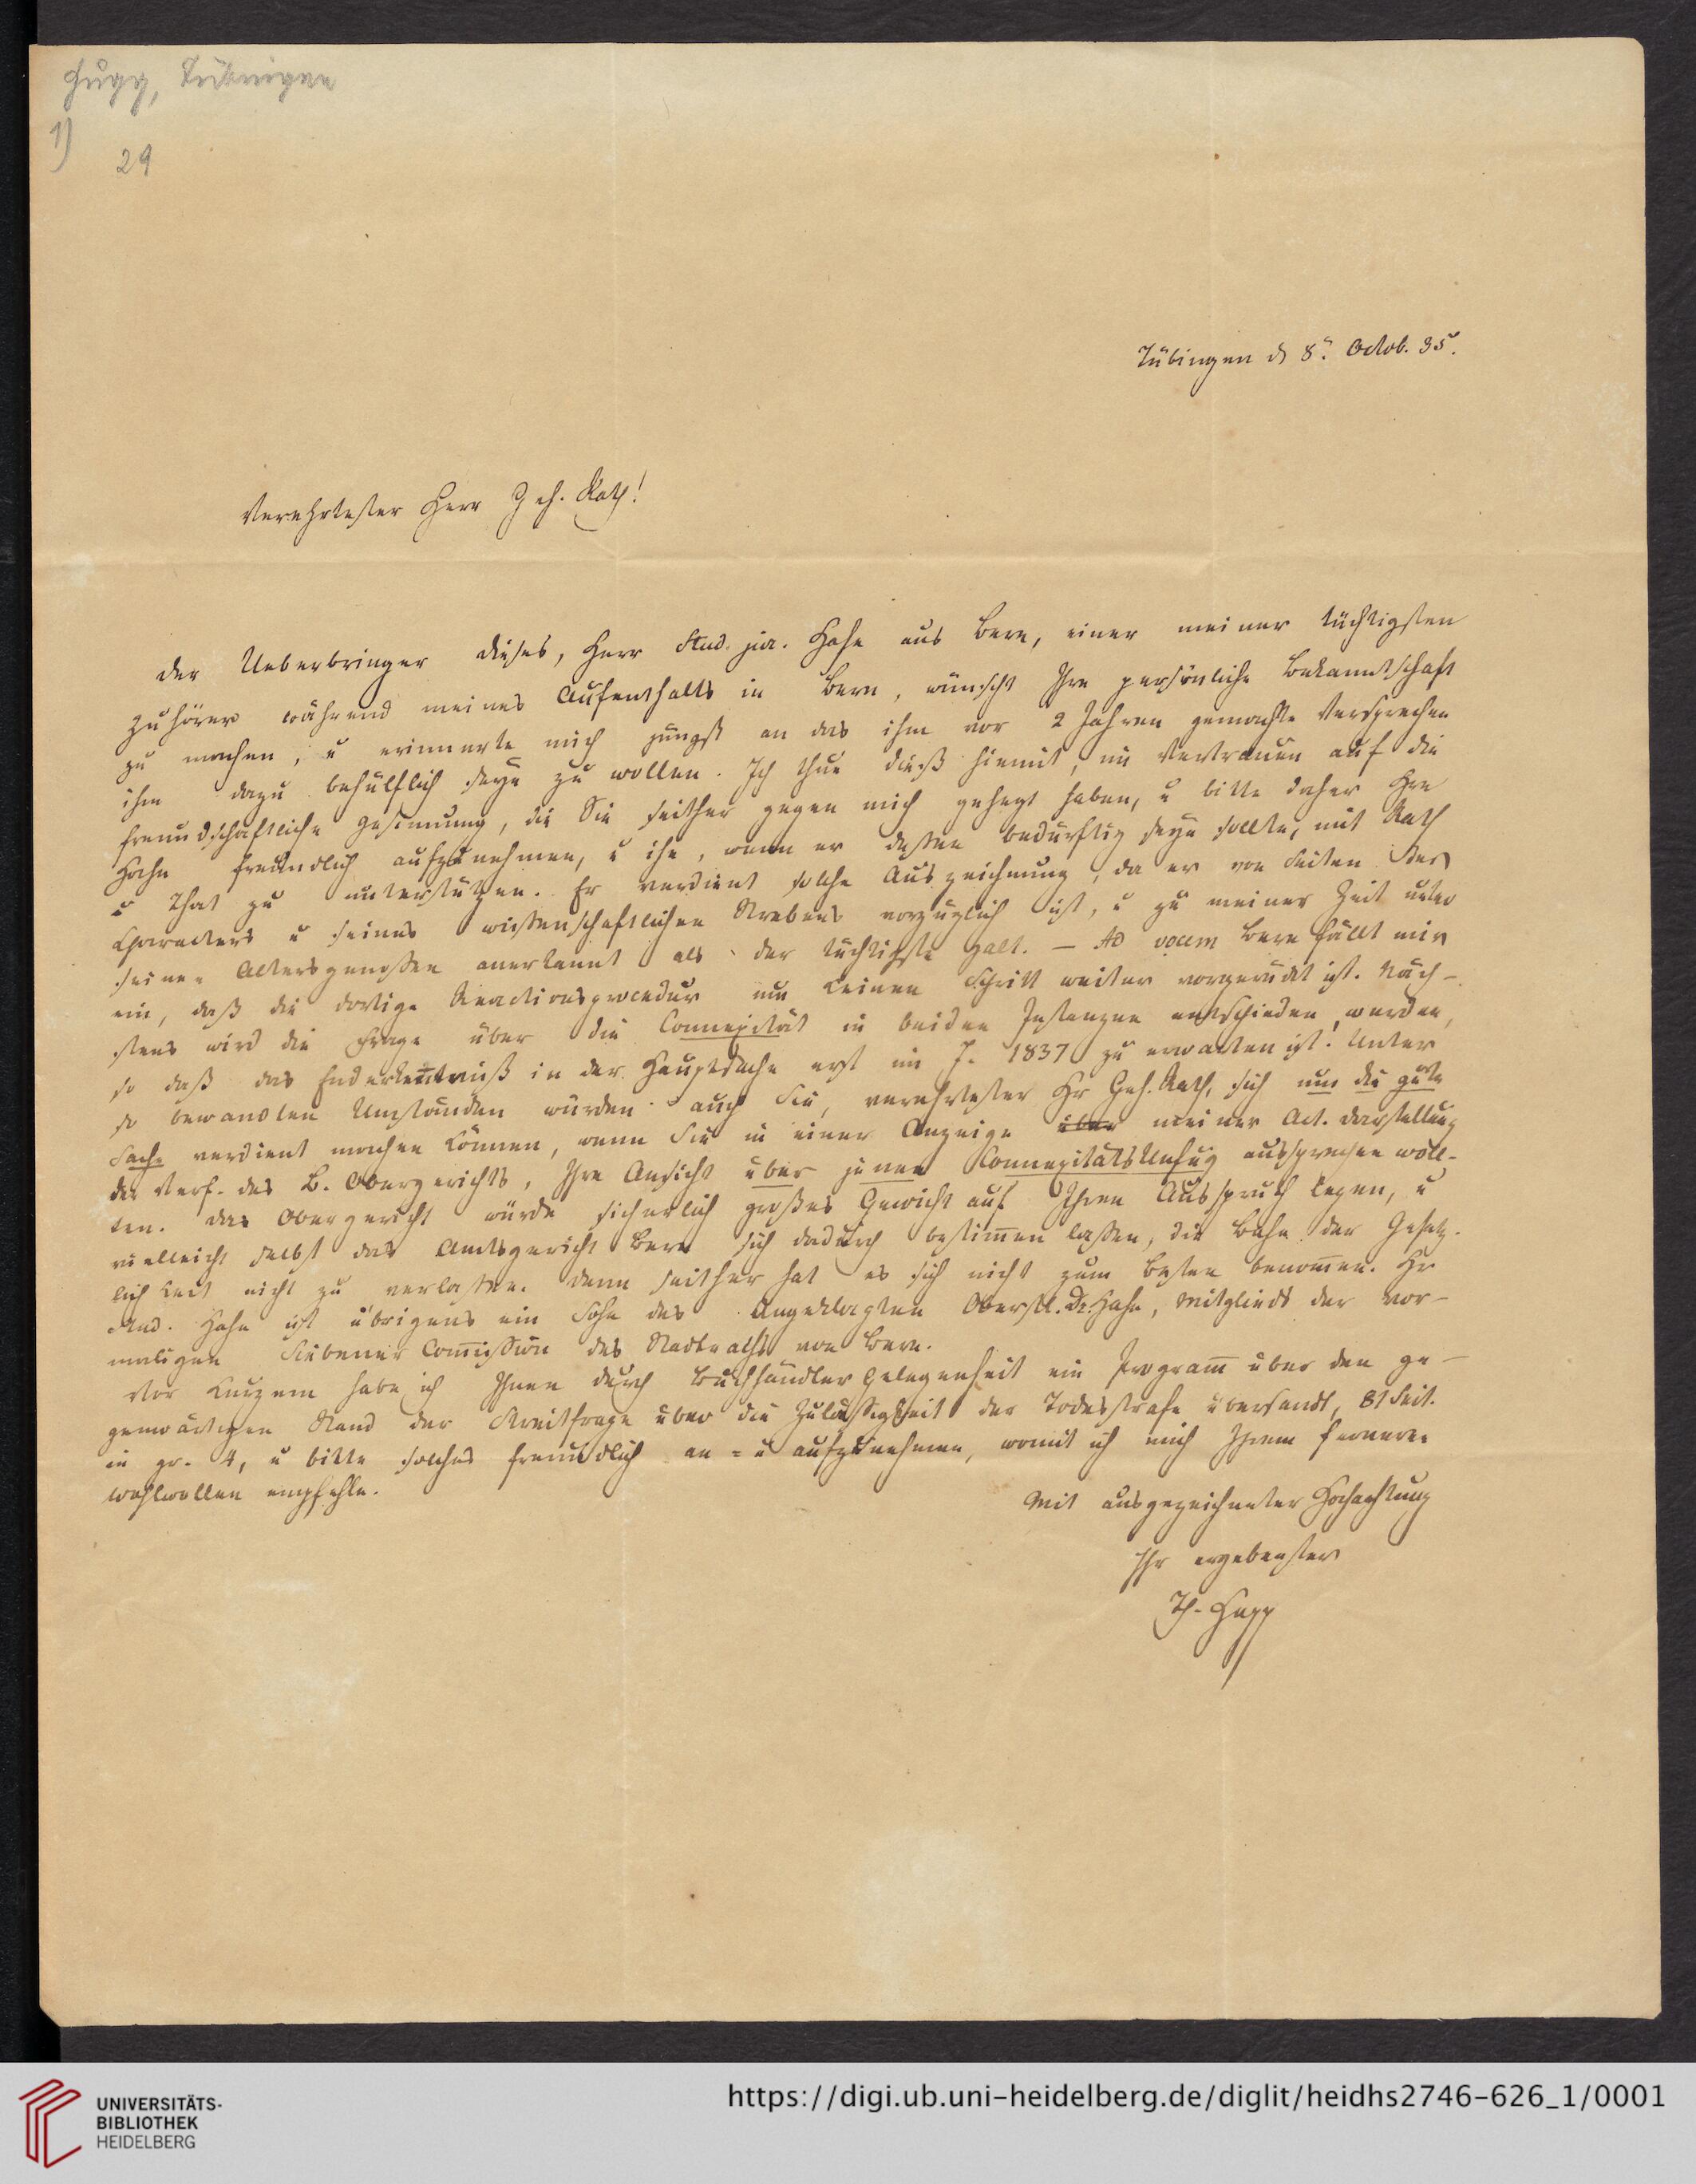 Hepp, Tübingen
1)
29
Tübingen d 8t. Octob. 35.
Verehrtester Herr Geh. Rath!
Der Ueberbringer dieses, Herr Stud. jur. Hahn aus Bern, einer meiner tüchtigsten
Zuhörer während meines Aufenthalts in Bern, wünscht Ihre persönliche Bekanntschaft
zu machen, u erinnerte mich jüngst an das ihm vor 2 Jahren gemachte Versprechen
ihm dazu behülflich seyn zu wollen. Ich thue dieß hiemit, im Vertrauen auf die
freundschaftliche Gesinnung, die Sie seither gegen mich gehegt haben, u bitte daher Hrn
Hahn freundlich aufzunehmen, u ihn, wenn er dessen bedürftig seyn sollte, mit Rath
u That zu unterstützen. Er verdient solche Auszeichnung, da er von Seiten des
Characters u seines wissenschaftlichen Strebens vorzüglich ist, u zu meiner Zeit unter
seinen Altersgenossen anerkannt als der tüchtigste galt. — Ad vocem Bern fällt mir
ein, daß die dortige Reactionsprocedur um keinen Schritt weiter vorgerückt ist. Näch-
stens wird die Frage über die Connexität in beiden Instanzen entschieden werden,
so daß das Enderkenntniß in der Hauptsache erst im J. 1837 zu erwarten ist. Unter
so bewandten Umständen würden auch Sie, verehrtester Hr Geh. Rath, sich um die gute
Sache verdient machen können, wenn Sie in einer Anzeige über meiner Act. Darstellung
des Verf. des B. Obergerichts, Ihre Ansicht über jenen ConnexitätsUnfug aussprechen woll-
ten. Das Obergericht würde sicherlich großes Gewicht auf Ihren Ausspruch legen, u
vielleicht selbst das Amtsgericht Bern sich dadurch bestimmen lassen, die Bahn der Gesetz-
lichkeit nicht zu verlassen. Denn seither hat es sich nicht zum Besten benommen. Hr
Stud. Hahn ist übrigens ein Sohn des Angeklagten Oberstl. Dr. Hahn, Mitglieds der vor-
maligen Siebener Commission des Stadtraths von Bern.
Vor Kurzem habe ich Ihnen durch Buchhändler Gelegenheit ein Programm über den ge-
genwärtigen Stand der Streitfrage über die Zulässigkeit der Todesstrafe übersandt, 81 Seit.
in gr. 4, u bitte solches freundlich an- u aufzunehmen, womit ich mich Ihrem ferneren
Wohlwollen empfehle.
Mit ausgezeichneter Hochachtung
Ihr ergebenster
Th. Hepp
UNIVERSITÄTS-
BIBLIOTHEK
HEIDELBERG
https://digi.ub.uni-heidelberg.de/diglit/heidhs2746-626_1/0001